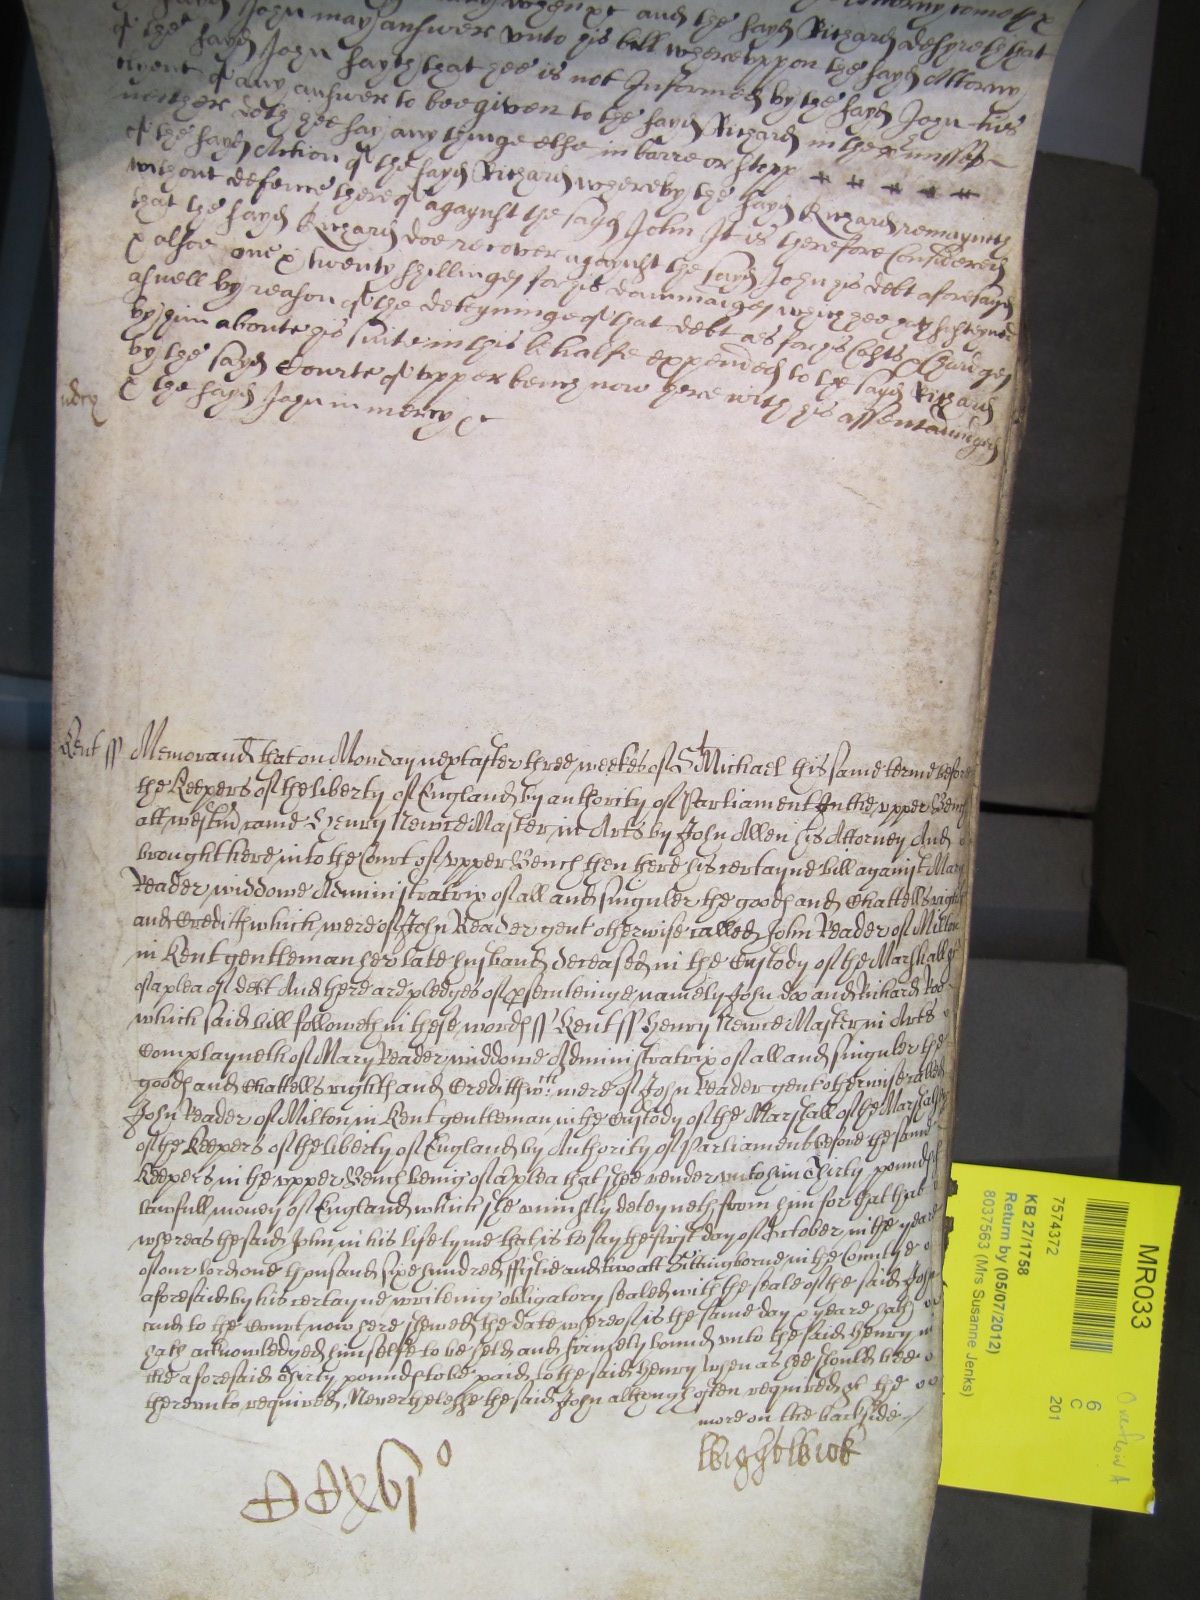 may answer unto his bill whereuppon the sayd Attorny
of the sayd John sayth that hee is not Informed by the sayd John his
Clyent of any answer to bee given to the sayd Richard in the premisses
neither doth hee say any thinge else in barre or stopp
of the sayd Action of the sayd Richard whereby the sayd Richard remayneth
without defence thereof agaynst the sayd John It is therefore Considered
that the sayd Richard doe recover agaynst the sayd John his debt aforesayd
& alsoe one & twenty shillinges for his dammages which hee hath susteyned
aswell by reason of the deteyninge of that debt as for his Costs & Charges
by him aboute his suite in this behalfe expended to the sayd Richard
by the sayd Courte of upper bench now here with his assent adiudged
& the sayd John in mercy &c
mercy
Kent ss Memorand that on Monday next after three weekes of St Michael this same terme before
the Keepers of the liberty of England by authority of Parliament In the upper Bench
att Westm came Henry Newce Master in Arts by John Allen his Attorney And
brought here into the Court of upper Bench then here his certayne bill against Mary
Reader widdowe Administratrix of all and singuler the goods and Chattells rights
and Creditts which were of John Reader gent otherwise called John Reader of Milton
in Kent gentleman her late husband deceased in the Custody of the Marshall &c
of a plea of debt And there are pledges of prosecuteinge namely John Doo and Richard Roo
which said bill followeth in these words ss Kent ss Henry Newce Master in Arts
Complayneth of Mary Reader widdowe Administratrix of all and singuler the
goods and Chattells rights and Creditts wch were of John Reader gent otherwise called
John Reader of Milton in Kent gentleman in the Custody of the Marshall of the Marshalsey
of the Keepers of the liberty of England by Authority of Parliament before the same
Keepers in the upper Bench being of a plea that shee render unto him Thirty pounds of
lawfull money of England which she uniustly deteyneth from him for that that
whereas the said John in his life tyme that is to say the first day of October in the yeare
of our Lord one thousand sixe hundred fiftie and two att Sittingborne in the Countye
aforesaid by his certayne writeing obligatory sealed with the seale of the said John
and to the Court now here shewed the date whereof is the same day & yeare hath
hath acknowledged himselfe to be held and firmely bound unto the said Henry in
the aforesaid Thirty pounds to be paid to the said Henry when as hee should bee
thereunto required, Neverthelesse the said John although often required &c the
more on the backside
Wightwick
MR033
7574372
201
KB 27/1758
6
C
Return by (05/07/2012)
8037563 (Mrs Susanne Jenks)
Overflow A